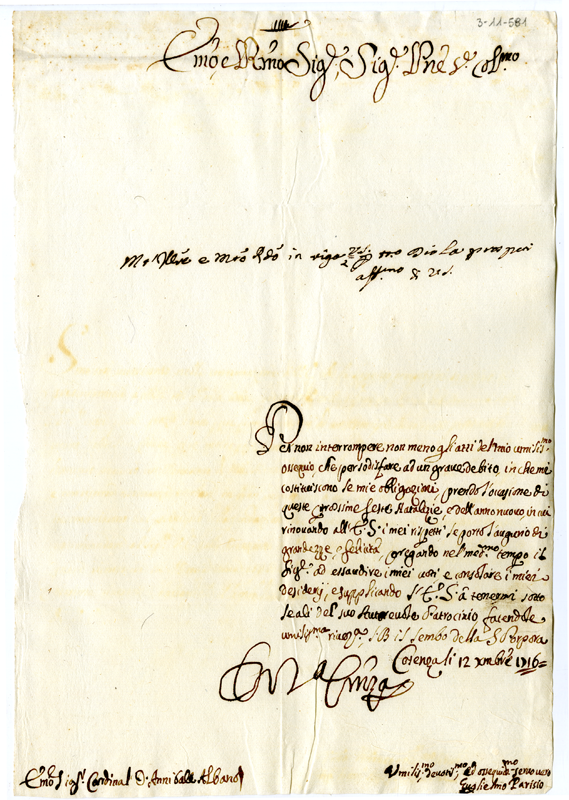 3-11-581
Em.o e R.mo Sig.r, Sig.r P.ne
Col.mo
e in
Dio La prosperi
aff.mo
Per non interrompere non meno gli atti del mio umiliss.mo
ossequio, che per sodisfare ad un grave debito, in che mi
costituiscono le mie obligazioni, prendo l'ocasione di
queste prossime feste Natalizie, e dell'anno nuovo in cui
rinovando all'E. S. i miei rispetti le porto l'augurio di
grandezze, e felicità, pregando nel med.mo tempo il
Sig.re ad essaudire i miei voti e consolare i miei
desiderij, e supplicando l'E. S. à tenermi sotto
le ali del suo Autorevole Patrocinio facendole
umiliss.ma river.za, li B il lembo della S. Porpora
Cosenza li 12 Xmbre 1716=
Em.o Sig.r Cardinal D. Annibale Albano
Umiliss.mo devotiss.mo ed ossequiosiss.mo servo vero
Guglielmo Parisio